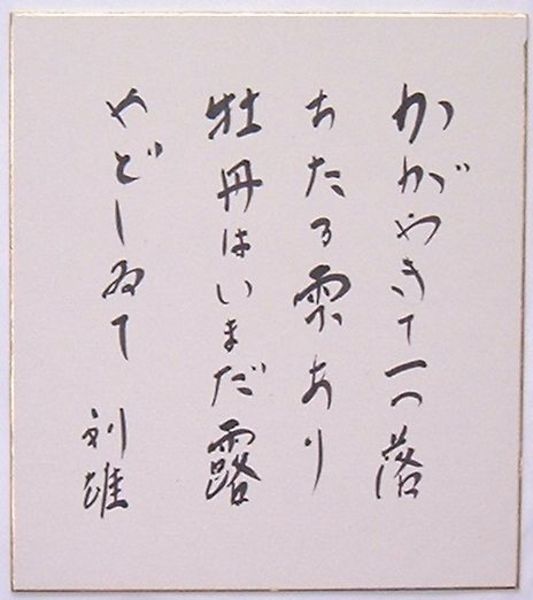 かがやきて一つ落
ちたる雫あり
牡丹はいまだ露
やどしゐて
利雄